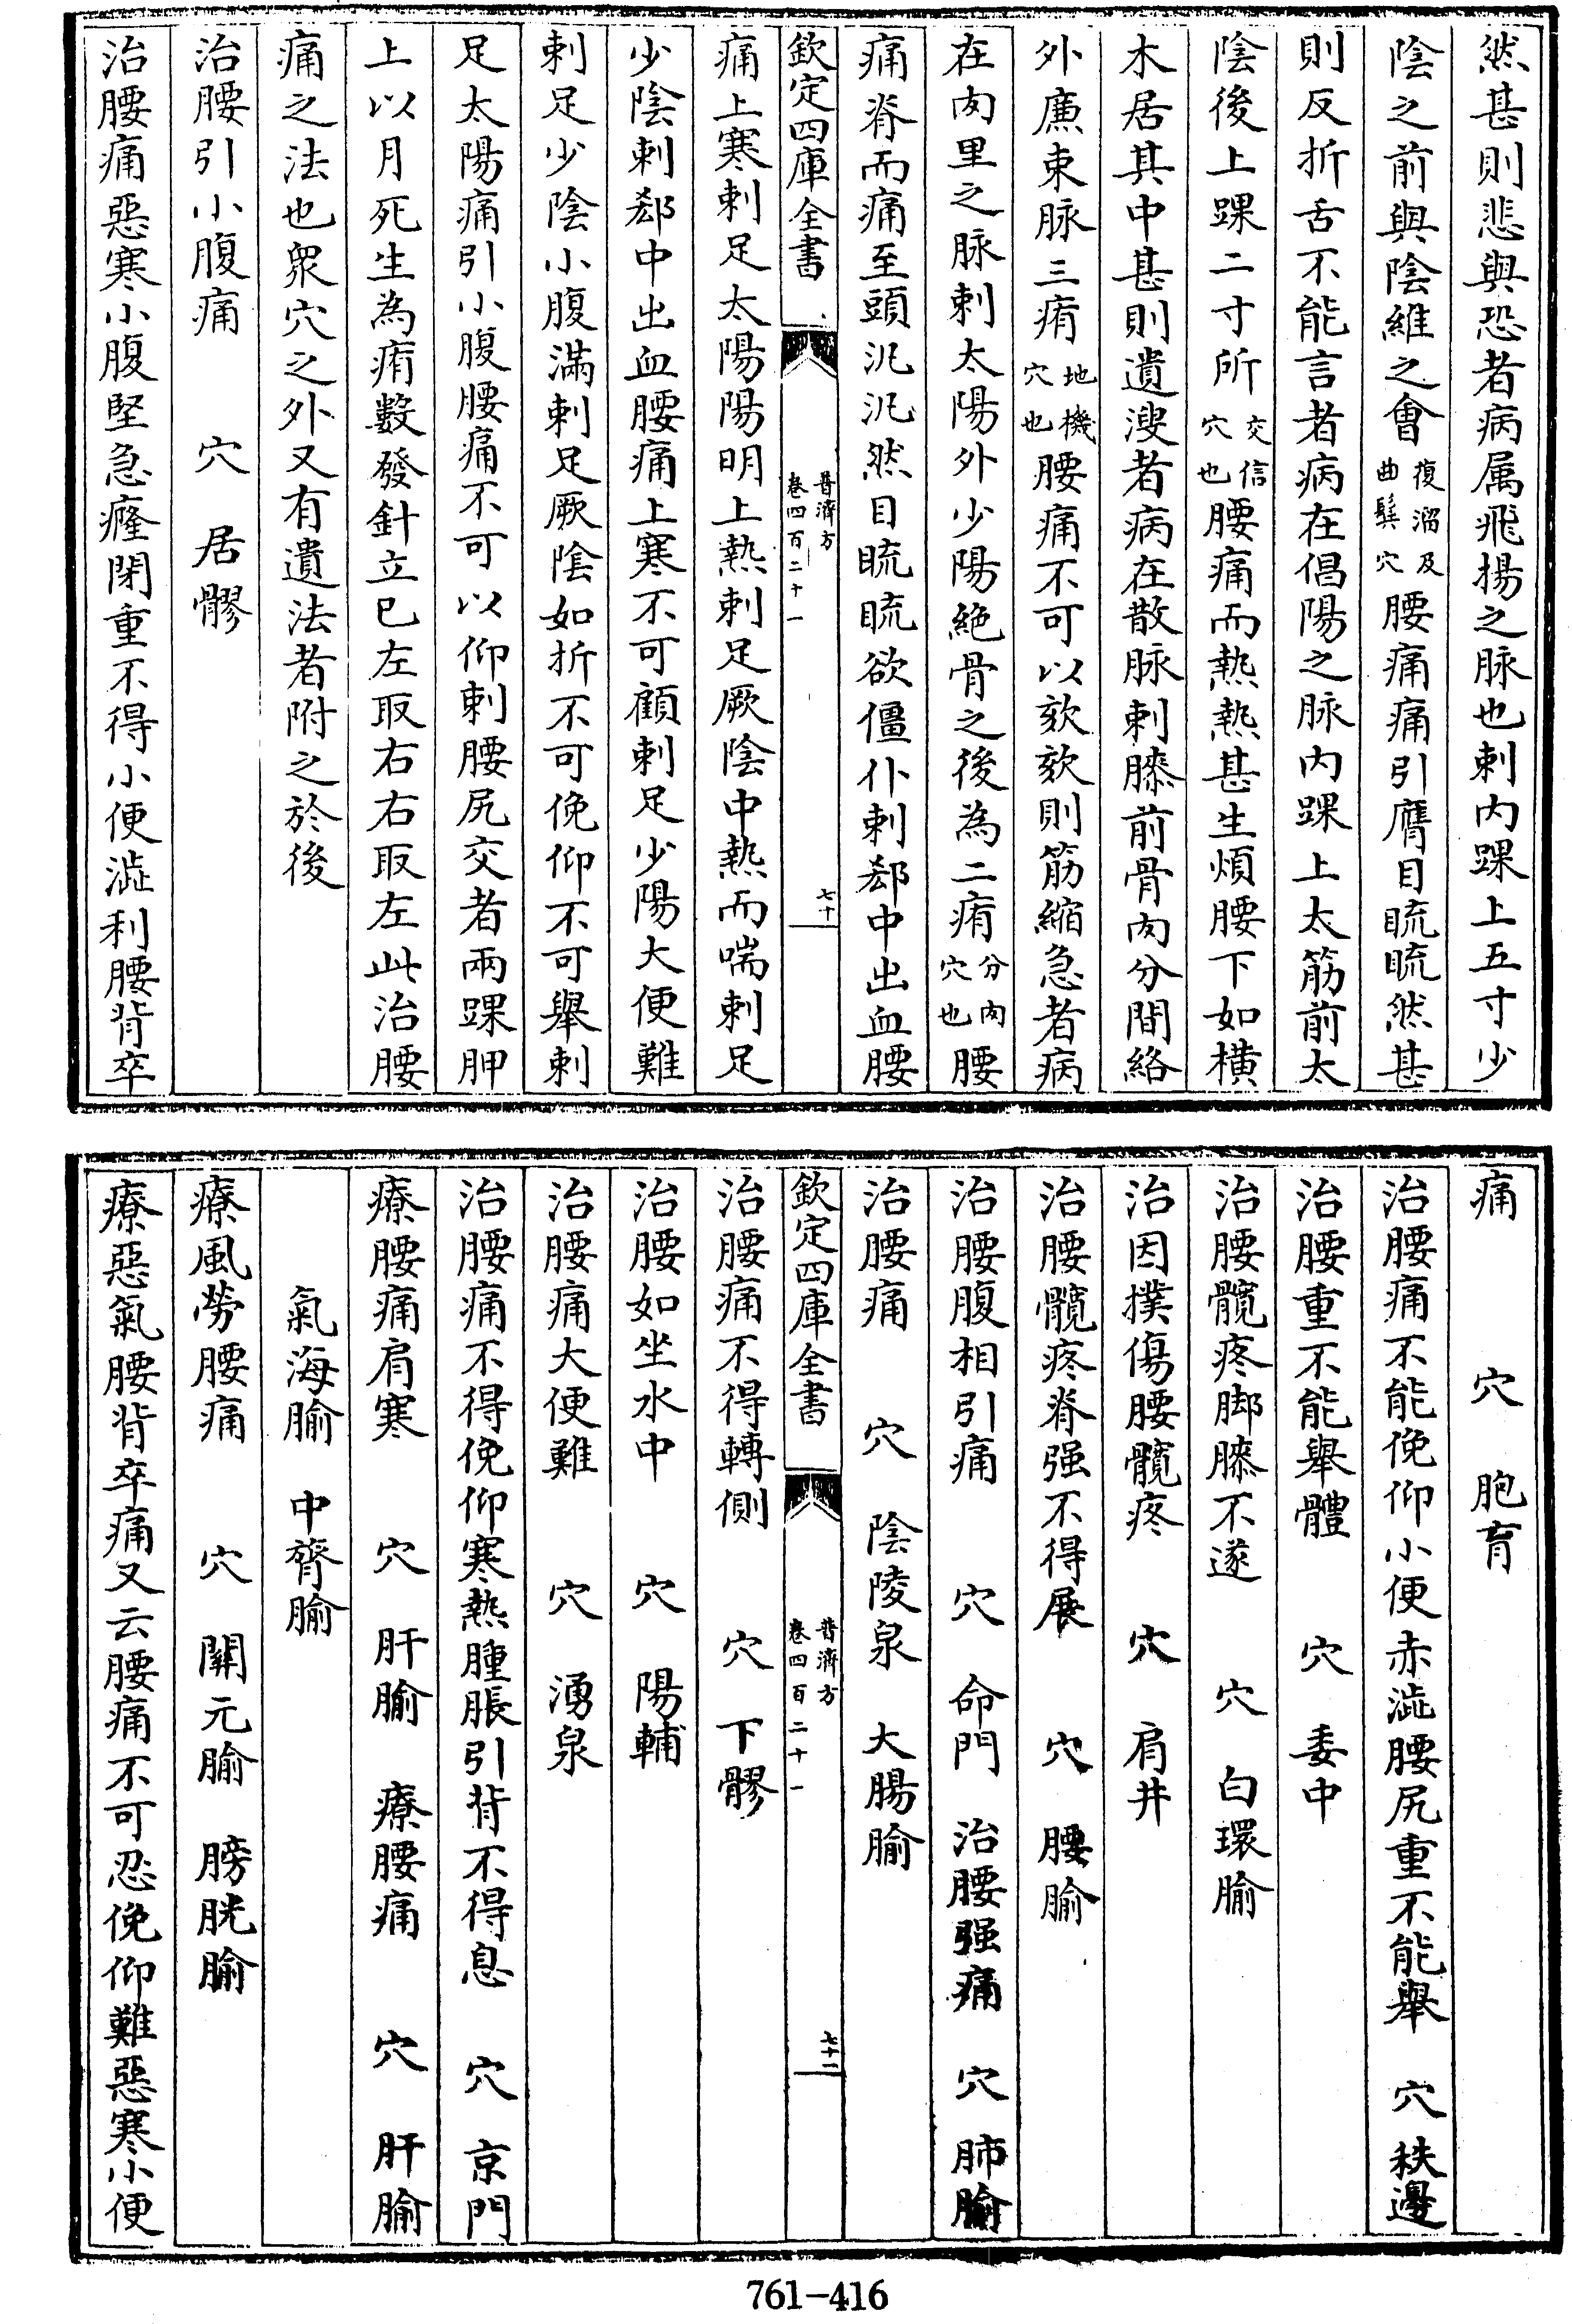 然甚則悲與恐者病属飛揚之脉也刺内踝上五寸少
陰之前與陰維之會復溜及曲鬓穴腰痛痛引膺目䀮䀮然甚
則反折舌不能言者病在倡陽之脉内踝上太筋前太
陰後上踝二寸所交信穴也腰痛而熱熱甚生煩腰下如横
木居其中甚則遺溲者病在散脉刺膝前骨肉分間絡
外廉束脉三痏地機穴也腰痛不可以欬欬則筋縮急者病
在肉里之脉刺太陽外少陽絶骨之後為二痏分肉穴也腰
痛脊而痛至頭沉沉然目䀮䀮欲僵仆刺郄中出血腰
欽定四庫全書
普濟方
卷四百二十一
七十
痛上寒刺足太陽陽明上熱刺足厥陰中熱而喘刺足
少陰刺郄中出血腰痛上寒不可顧刺足少陽大便難
刺足少陰小腹滿刺足厥陰如折不可俛仰不可舉刺
足太陽痛引小腹腰痛不可以仰刺腰尻交者兩踝胛
上以月死生為痏數發針立已左取右右取左此治腰
痛之法也衆穴之外又有遺法者附之於後
治腰引小腹痛　穴　居髎
治腰痛惡寒小腹堅急癃閉重不得小便澁利腰背卒
痛　穴　胞肓
治腰痛不能俛仰小便赤澁腰尻重不能舉　穴　秩邊
治腰重不能舉體　穴　委中
治腰髖疼脚膝不遂　穴　白環腧
治因撲傷腰髖疼　穴　肩井
治腰髖疼脊强不得展　穴　腰腧
治腰腹相引痛　穴　命門　治腰强痛　穴　肺腧
治腰痛　穴　陰陵泉　大腸腧
欽定四庫全書
普濟方
卷四百二十一
七十一
治腰痛不得轉側　穴　下髎
治腰如坐水中　穴　陽輔
治腰痛大便難　穴　湧泉
治腰痛不得俛仰寒熱腫脹引背不得息　穴　京門
療腰痛肩寒　穴　肝腧　療腰痛　穴　肝腧
氣海腧　中膂腧
療風勞腰痛　穴　關元腧　膀胱腧
療惡氣腰背卒痛又云腰痛不可忍俛仰難惡寒小便
761-416